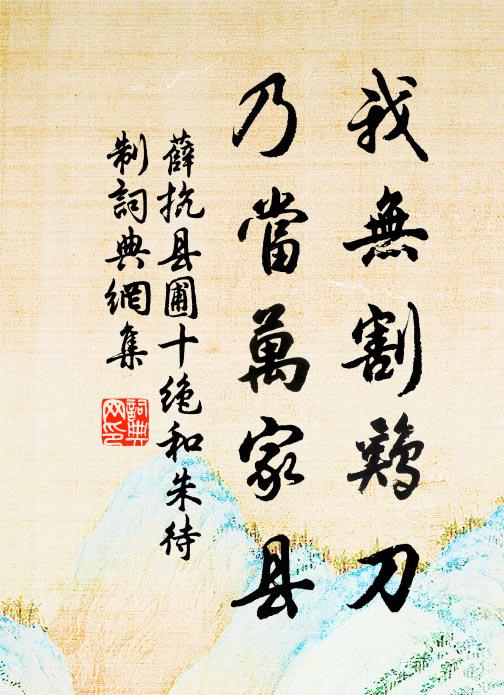 我無割鷄刀
乃當萬家县
薛抗县圃十绝和朱待
制詞典網集
詞典
网印